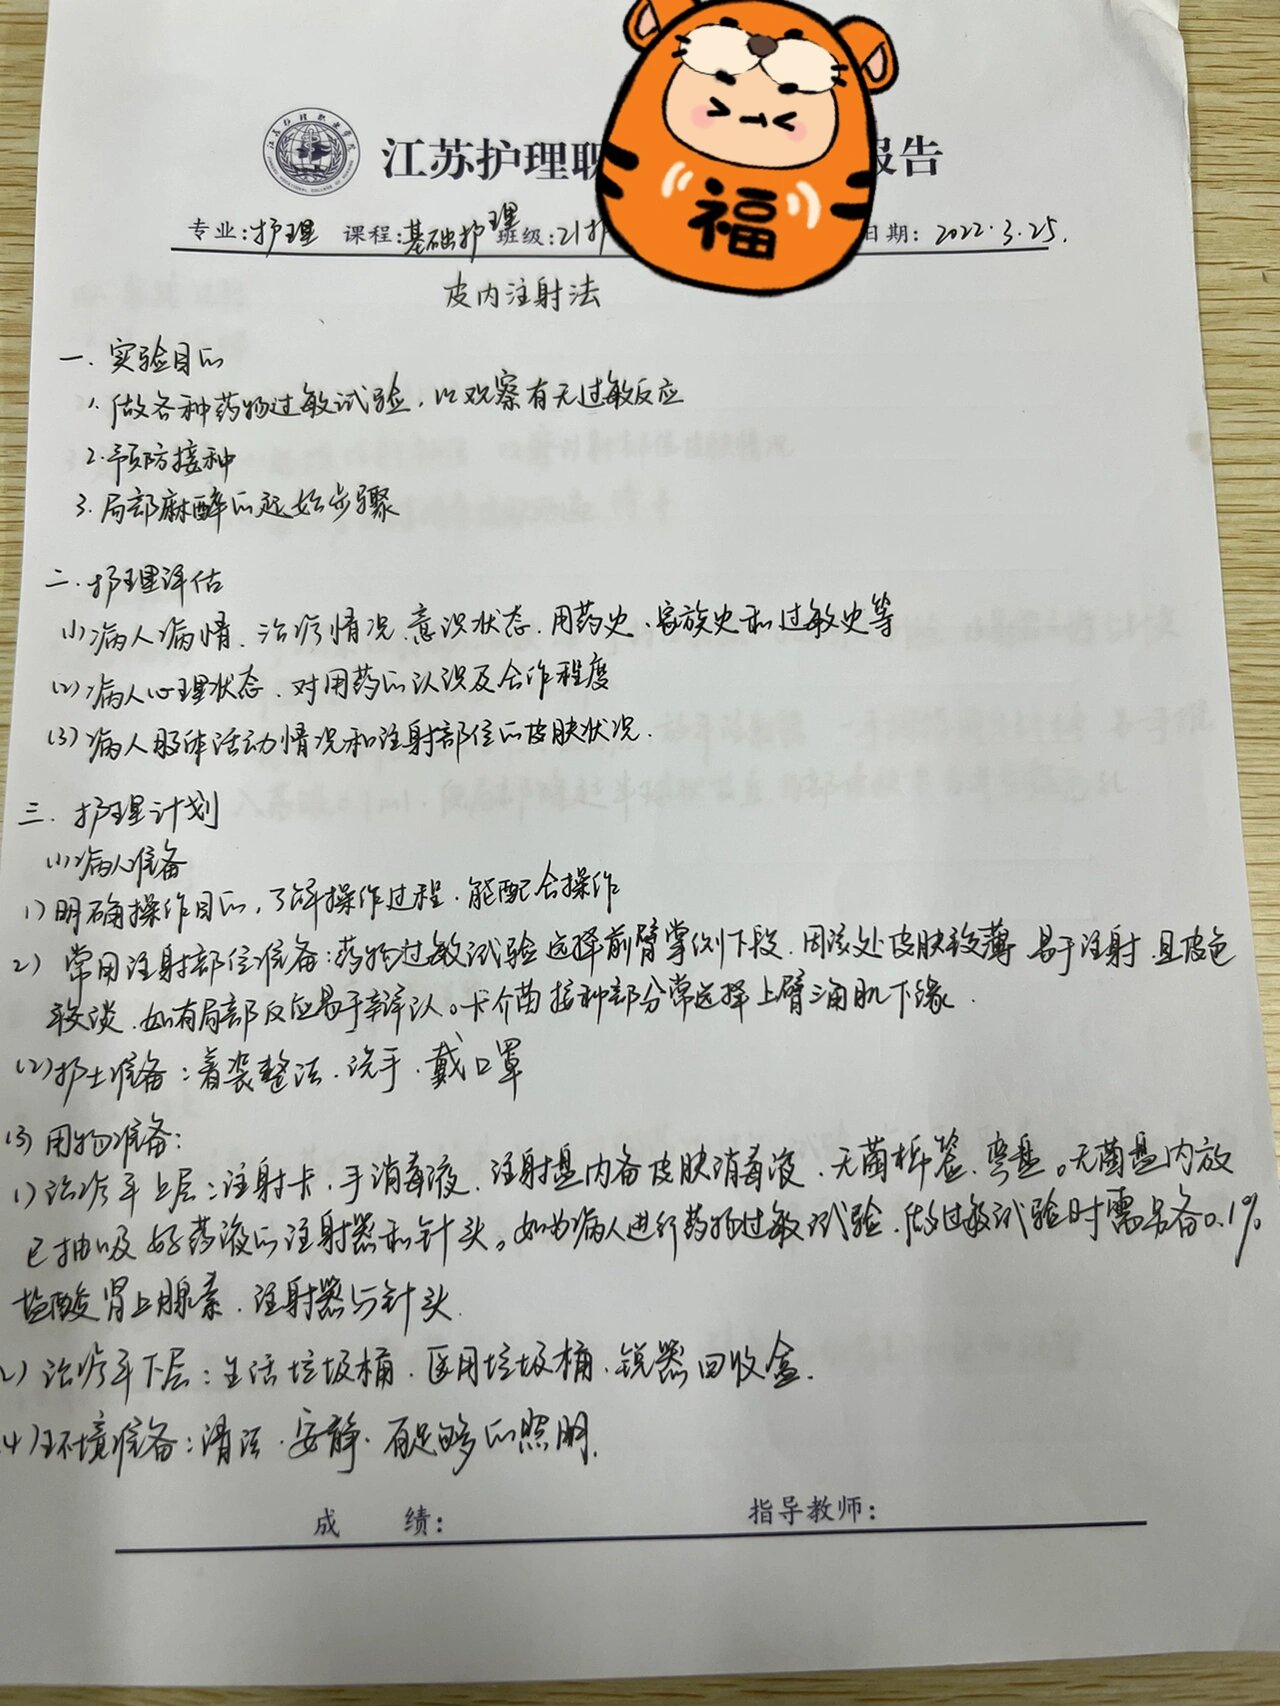 江苏护理职
报告
福
专业:护理 课程:基础护理 班级:21护 日期: 2022.3.25.
皮内注射法
一. 实验目的
1. 做各种药物过敏试验,以观察有无过敏反应
2.预防接种
3.局部麻醉的起始步骤
二.护理评估
(1)病人病情、治疗情况、意识状态、用药史、家族史和过敏史等
(2)病人心理状态、对用药的认识及合作程度
(3)病人肢体活动情况和注射部位的皮肤状况.
三. 护理计划
(1)病人准备
1)明确操作目的,了解操作过程.能配合操作
2) 常用注射部位准备:药物过敏试验选择前臂掌侧下段.因该处皮肤较薄 易于注射.且皮色
较淡.如有局部反应易于辩认。卡介苗接种部分常选择上臂三角肌下缘.
(2)护士准备:着装整洁.洗手.戴口罩
(3)用物准备:
1)治疗车上层:注射卡.手消毒液.注射盘内备皮肤消毒液.无菌棉签.弯盘。无菌盘内放
已抽吸好药液的注射器和针头。如为病人进行药物过敏试验.做过敏试验时需另备0.1%
盐酸肾上腺素.注射器与针头.
2)治疗车下层:生活垃圾桶.医用垃圾桶.锐器回收盒.
(4)环境准备:清洁.安静.有足够的照明.
成 绩: 指导教师: